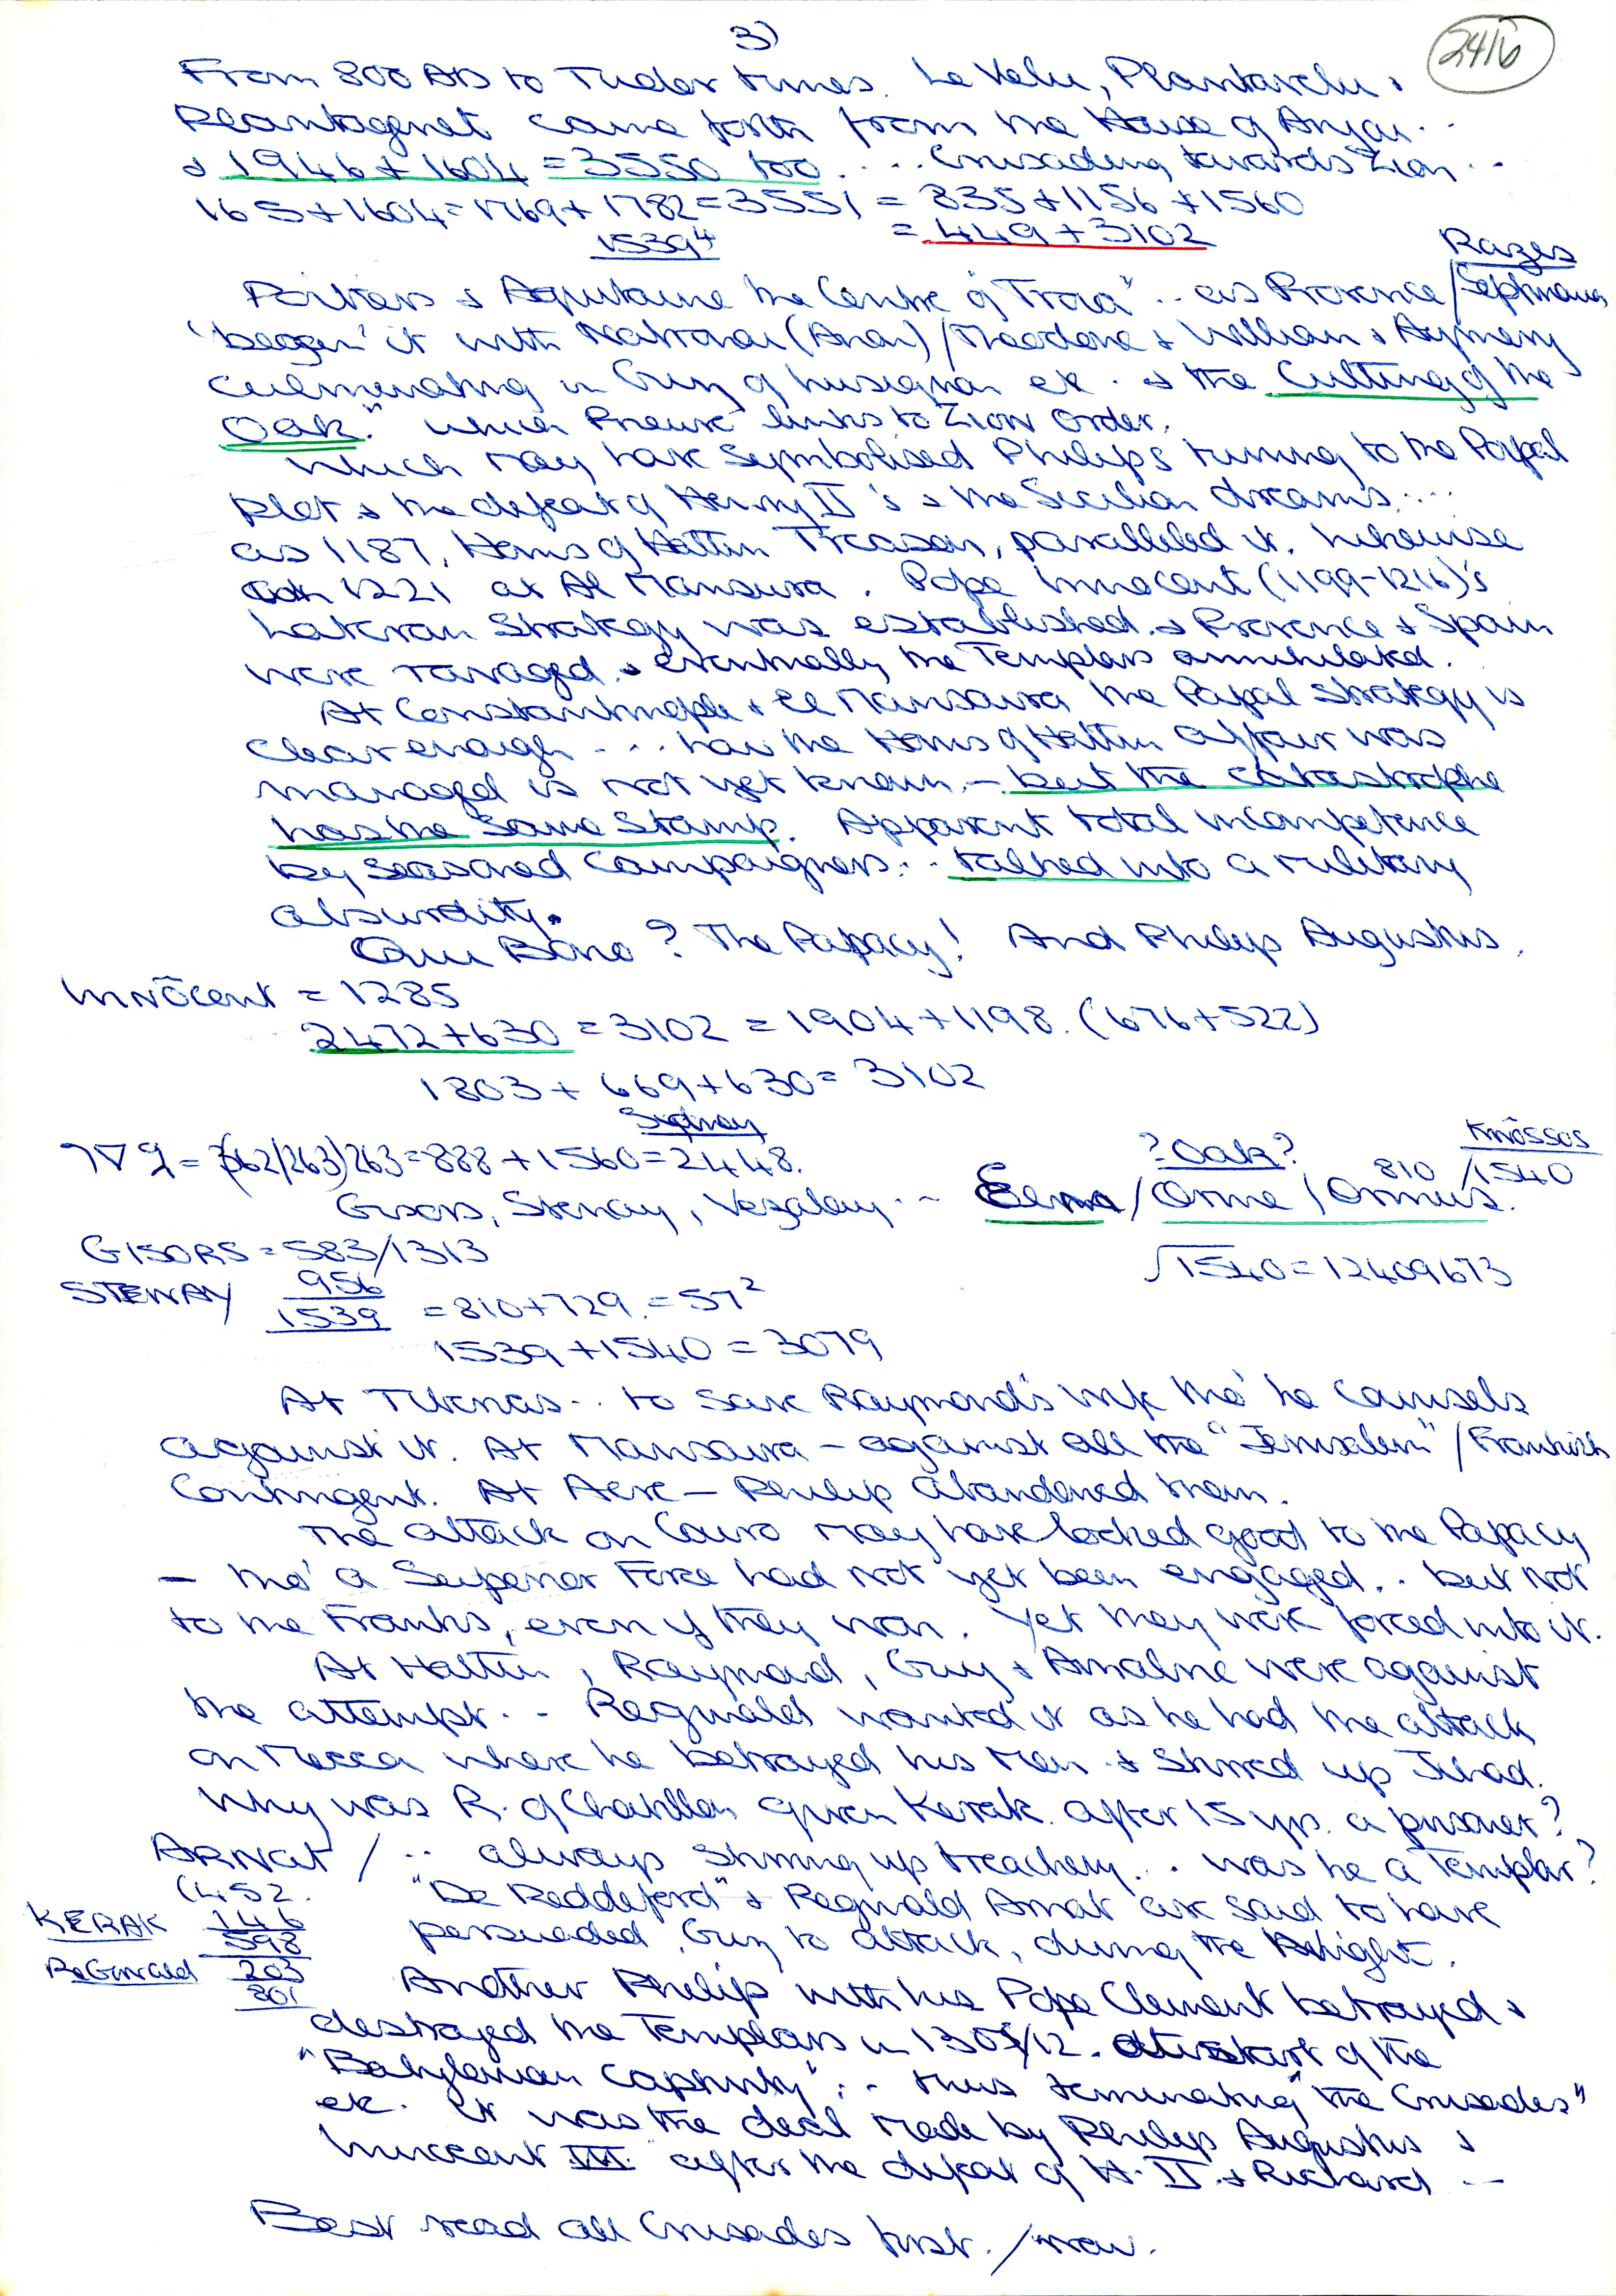 3)
24/6
From 800 AD to Tudor times. Le Velu, Plantavelu &
Plantagenet came forth from the House of Anjou..
& 1946 + 1604 = 3550 too. ... Crusading towards Zion ..
165 + 1604 = 1769 + 1782 = 3551 = 835 + 1156 + 1560
15394 = 449 + 3102
Razes
Poitiers & Aquitaine the Centre of "Troia" .. as Provence / Septimania
'began' it with Natronai (Anan) / Theodoric & William & Aymery
culminating in Guy of Lusignan etc. & the Cutting of the
Oak." which Prieuré links to Zion Order.
Which may have symbolised Philip's turning to the Papal
plot & the defeat of Henry II's & the Sicilian dreams....
as 1187, Horns of Hattin Treason, paralleled it. Likewise
1221 at Al Mansura. Pope Innocent (1199-1216)'s
Lateran Strategy was established. & Provence & Spain
were ravaged & eventually the Templars annihilated.
At Constantinople & El Mansoura the Papal strategy is
clear enough ... how the Horns of Hattin affair was
managed is not yet known. - but the catastrophe
has the same stamp. Apparent total incompetence
by seasoned campaigners... talked into a military
absurdity.
Qui Bono? The Papacy! And Philip Augustus.
INNÔCent = 1285
2472 + 630 = 3102 = 1904 + 1198. (676 + 522)
1803 + 669 + 630 = 3102
Sydney
263 = 888 + 1560 = 2448.
?Oak? Knôssos
810 / 1540
Gisors, Stenay, Vezalay .. / Orme / Ormus.
GISORS = 583/1313
√1540 = 12409673
STENAY 956
1539 = 810 + 729. = 57²
1539 + 1540 = 3079
At Tiberias.. to save Raymond's wife tho' he counsels
against it. At Mansoura - against all the "Jerusalem" / Frankish
Contingent. At Acre - Philip abandoned them.
The attack on Cairo may have looked good to the Papacy
- tho' a Superior Force had not yet been engaged.. but not
to the Franks, even if they won. Yet they were forced into it.
At Hattin, Raymond, Guy & Amalric were against
the attempt.. Reginald wanted it as he had the attack
on Mecca where he betrayed his Men & stirred up Jihad.
Why was R. of Chatillon given Kerak after 15 yrs. a prisoner?
ARNat / .. always stirring up treachery.. was he a Templar?
(452. "De Reddeford" & Reginald Arnat are said to have
KERAK 146
598 persuaded Guy to attack, during the Night.
ReGinald 203
801
Another Philip with his Pope Clement betrayed &
destroyed the Templars in 1305/12. at start of the
"Babylonian Captivity".. thus terminating "the Crusades"
etc. It was the deal made by Philip Augustus &
Innocent III after the defeat of H. II & Richard --
Best read all Crusades first. / now.